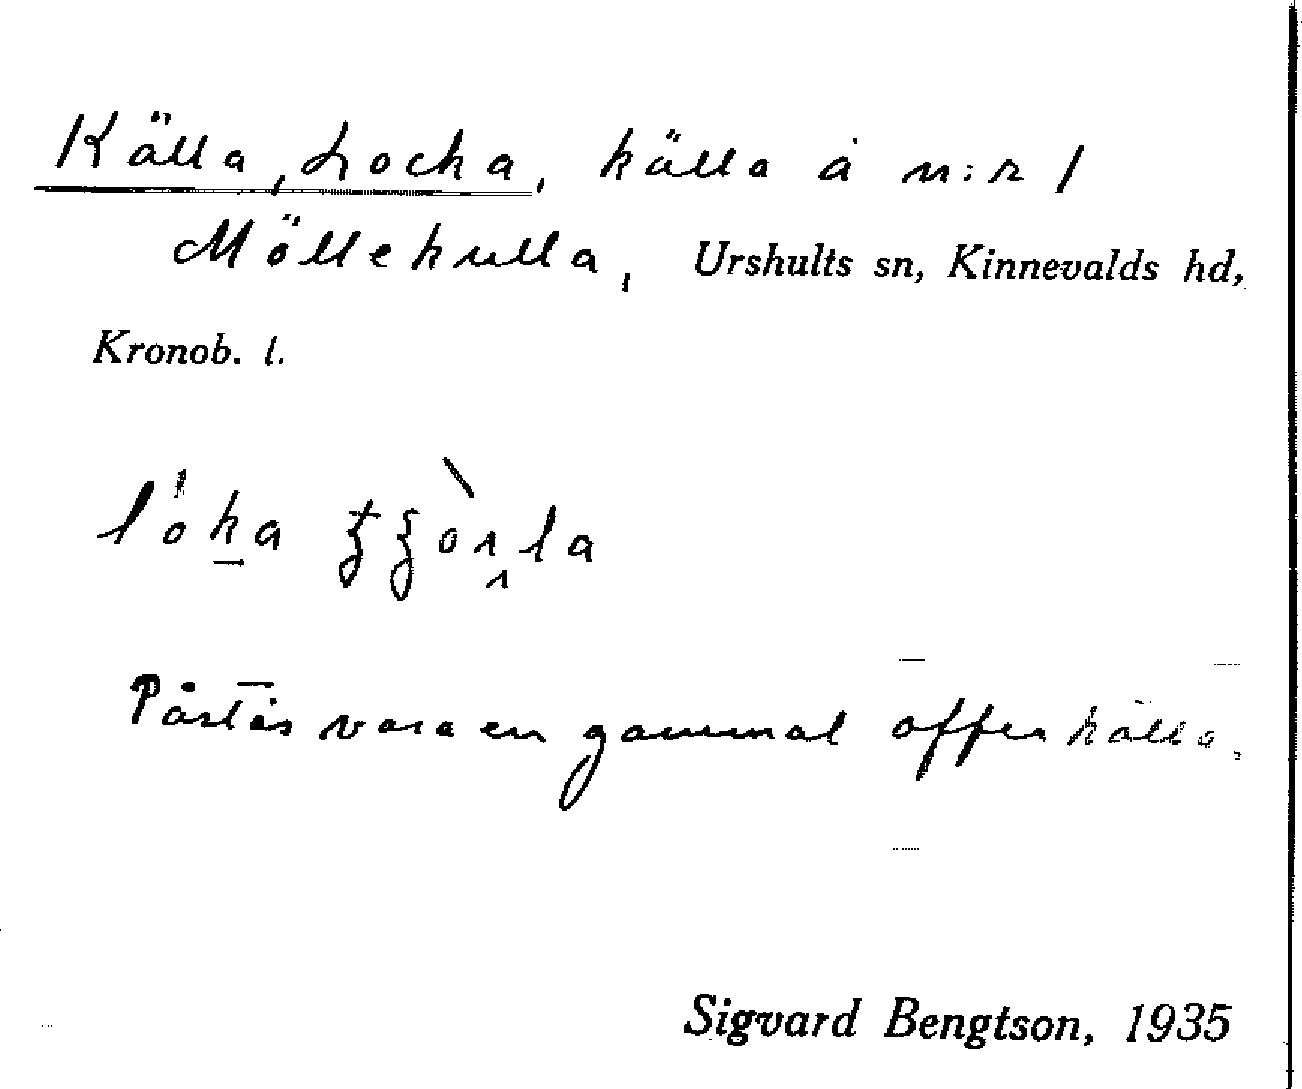 Källa, Locka, källa å n:r 1
Möllekulla, Urshults sn, Kinnevalds hd,
Kronob. l.
Påstås vara en gammal offerkälla.
Sigvard Bengtson, 1935